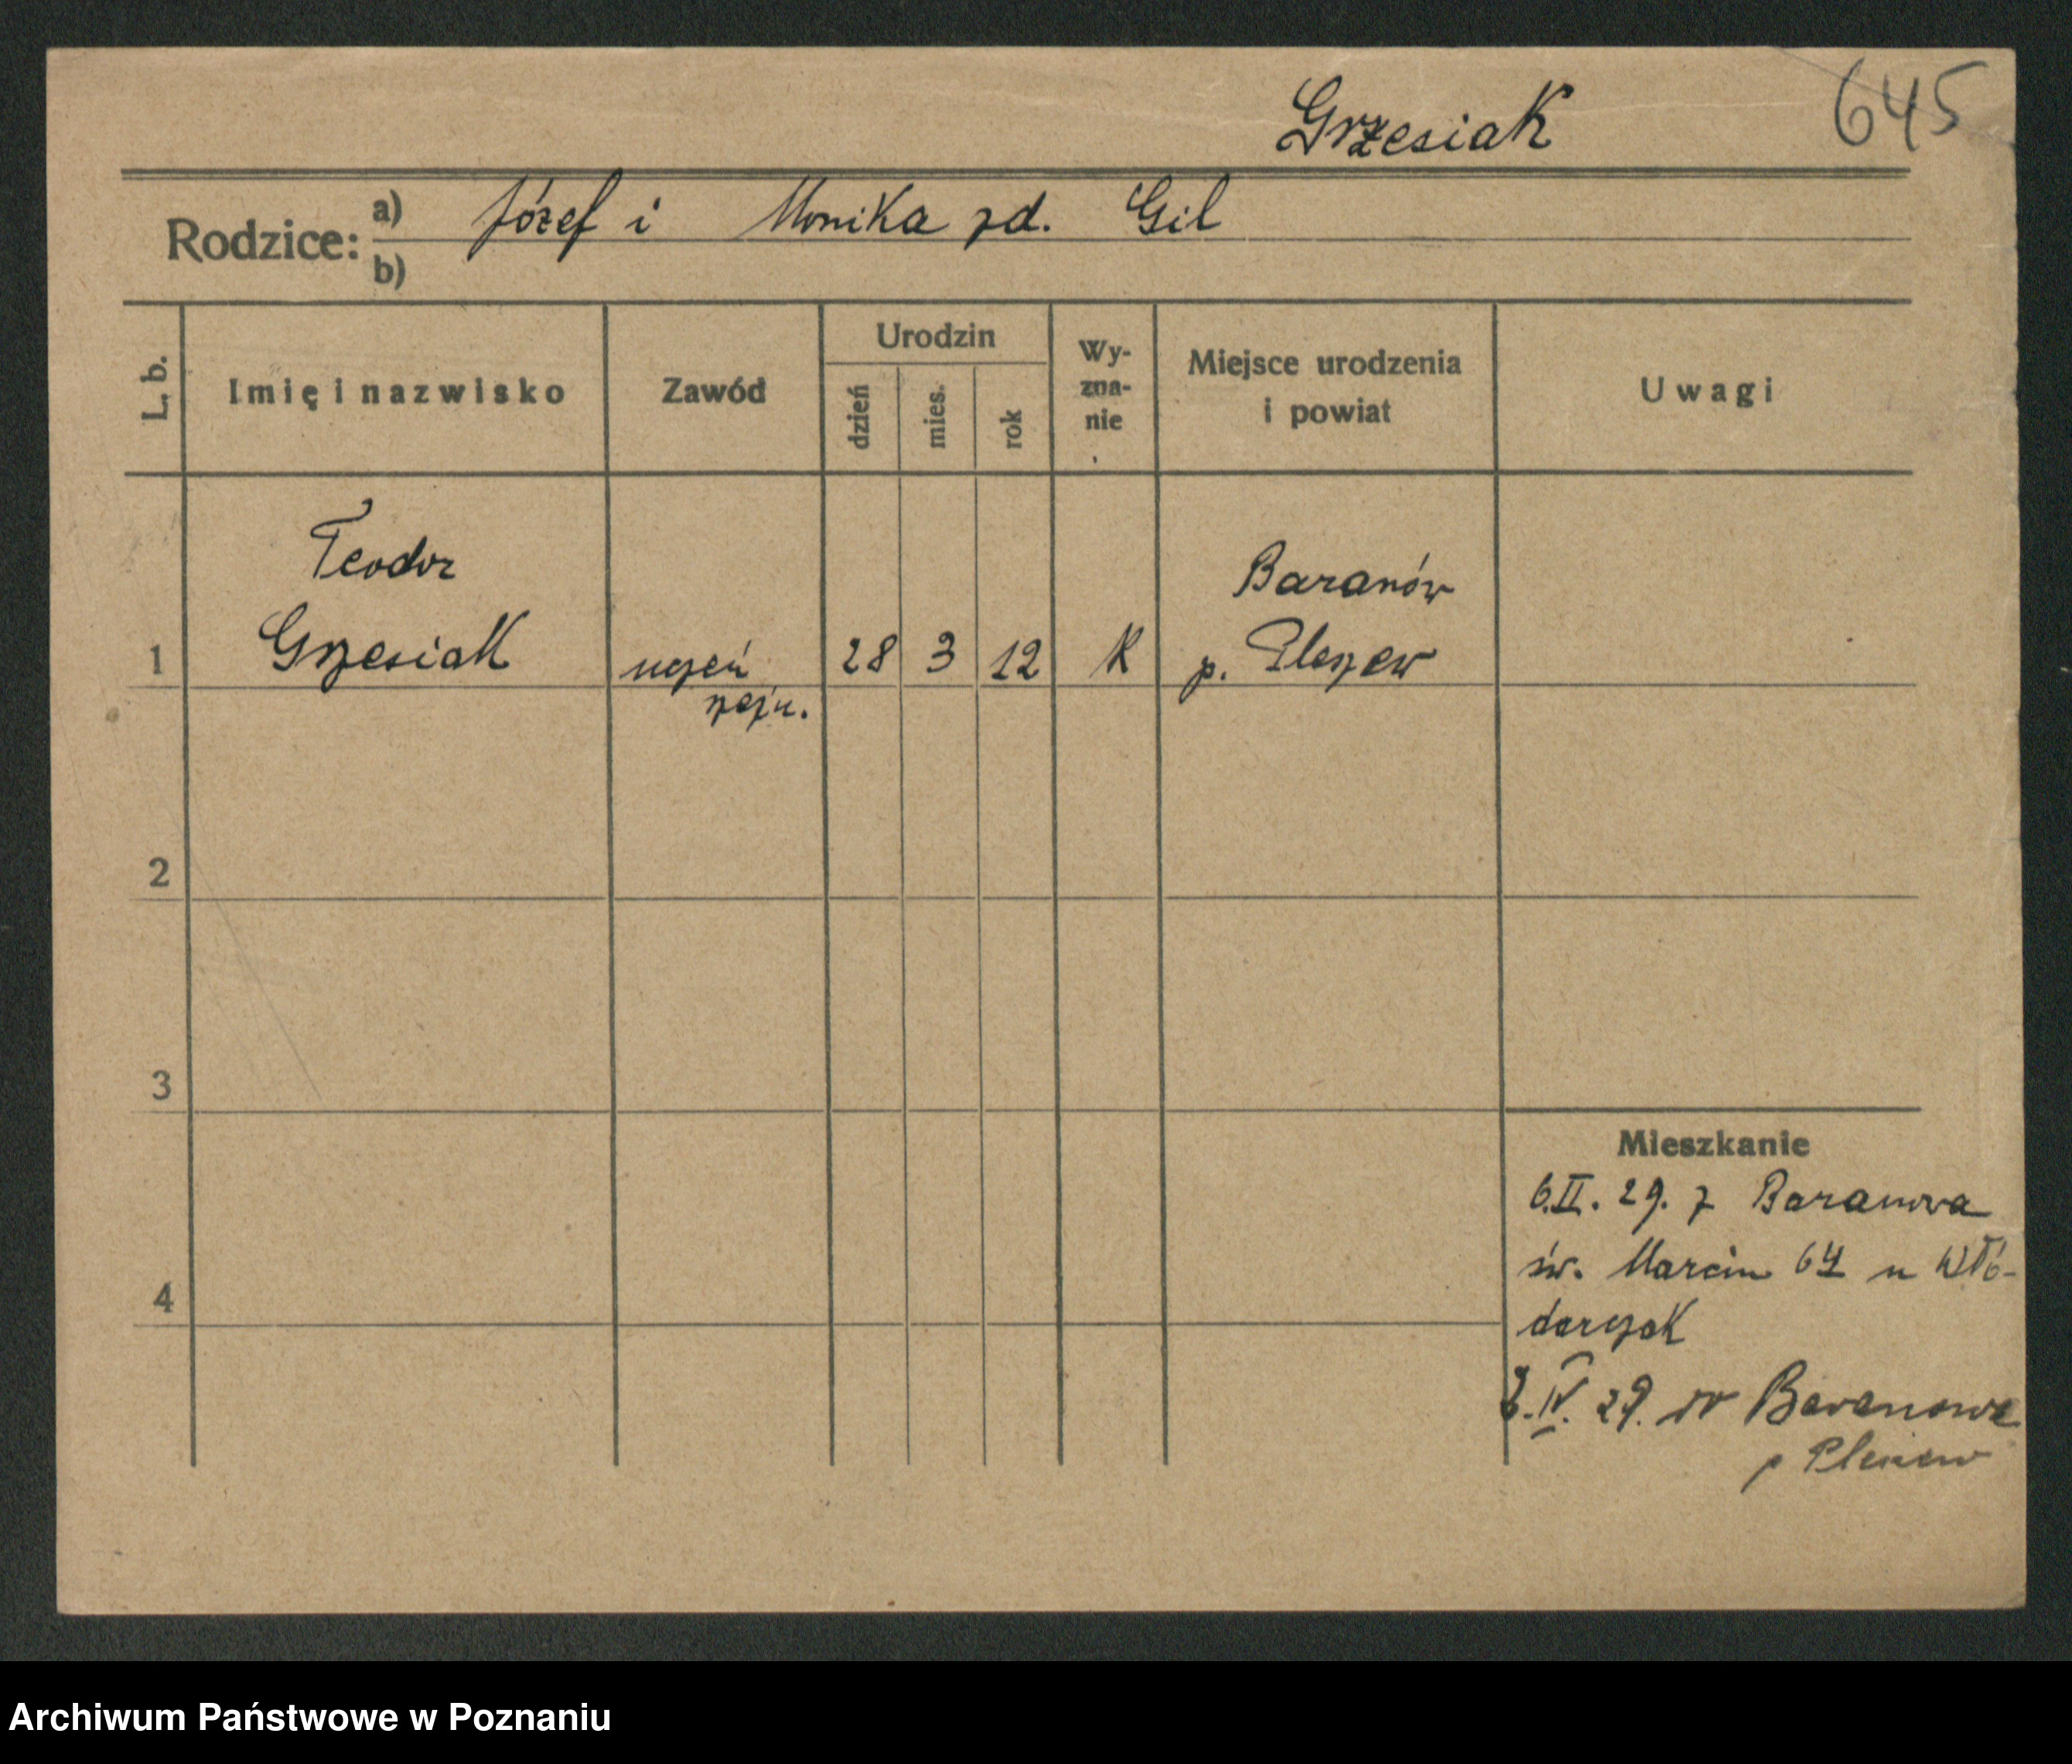 Grzesiak
645
Rodzice: a) Józef i Monika zd. Gil
b)
L. b.
Imię i nazwisko
Zawód
Urodzin
dzień
mies.
rok
Wy-
zna-
nie
Miejsce urodzenia
i powiat
Uwagi
Teodor
Baranów
1 Grzesiak uczeń 28 3 12 K p. Pleszew
2
3
4
Mieszkanie
6.II. 29. z Baranowa
św. Marcin 64 u Wło-
darczak
IV. 29. Baranowa
p Pleszew
Archiwum Państwowe w Poznaniu